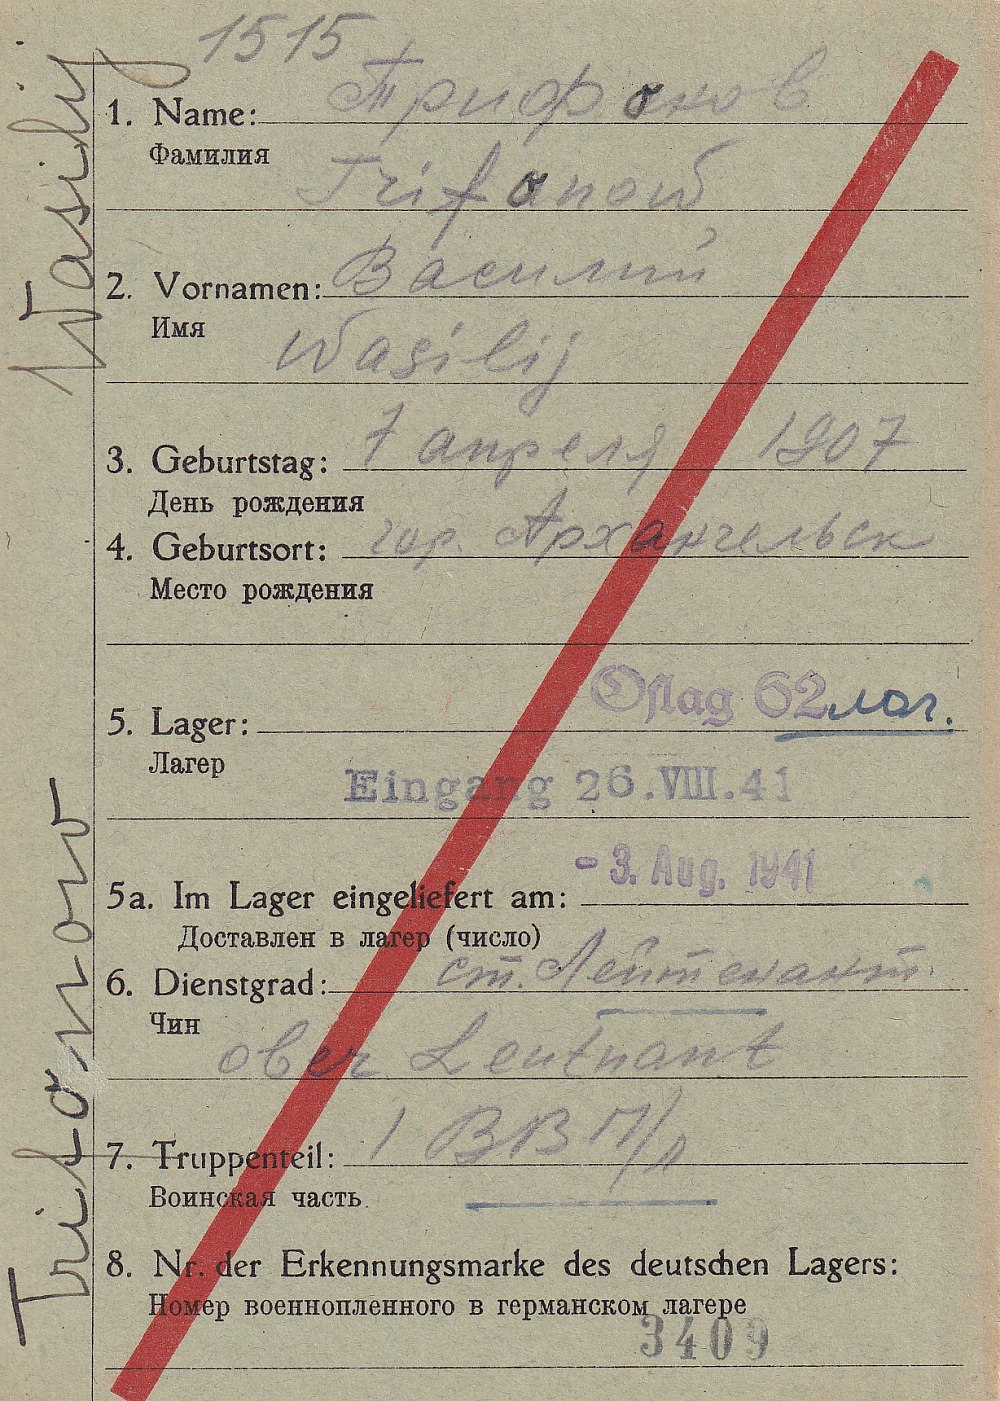 1515
1. Name: Трифонов
Фамилия
Trifonow
2. Vornamen: Василий
Имя
Wasilij
3. Geburtstag: 7 апреля 1907
День рождения
4. Geburtsort: гор. Архангельск
Место рождения
Oflag 62 лаг.
5. Lager:
Лагер
Eingang 26.VIII.41
- 3. Aug. 1941
5a. Im Lager eingeliefert am:
Доставлен в лагер (число)
6. Dienstgrad: ст. Лейтенант.
Чин
ober Leutnant
7. Truppenteil: 1 ВВ П/л
Воинская часть
8. Nr. der Erkennungsmarke des deutschen Lagers:
Номер военнопленного в германском лагере
3409
Trifonow Wasilij